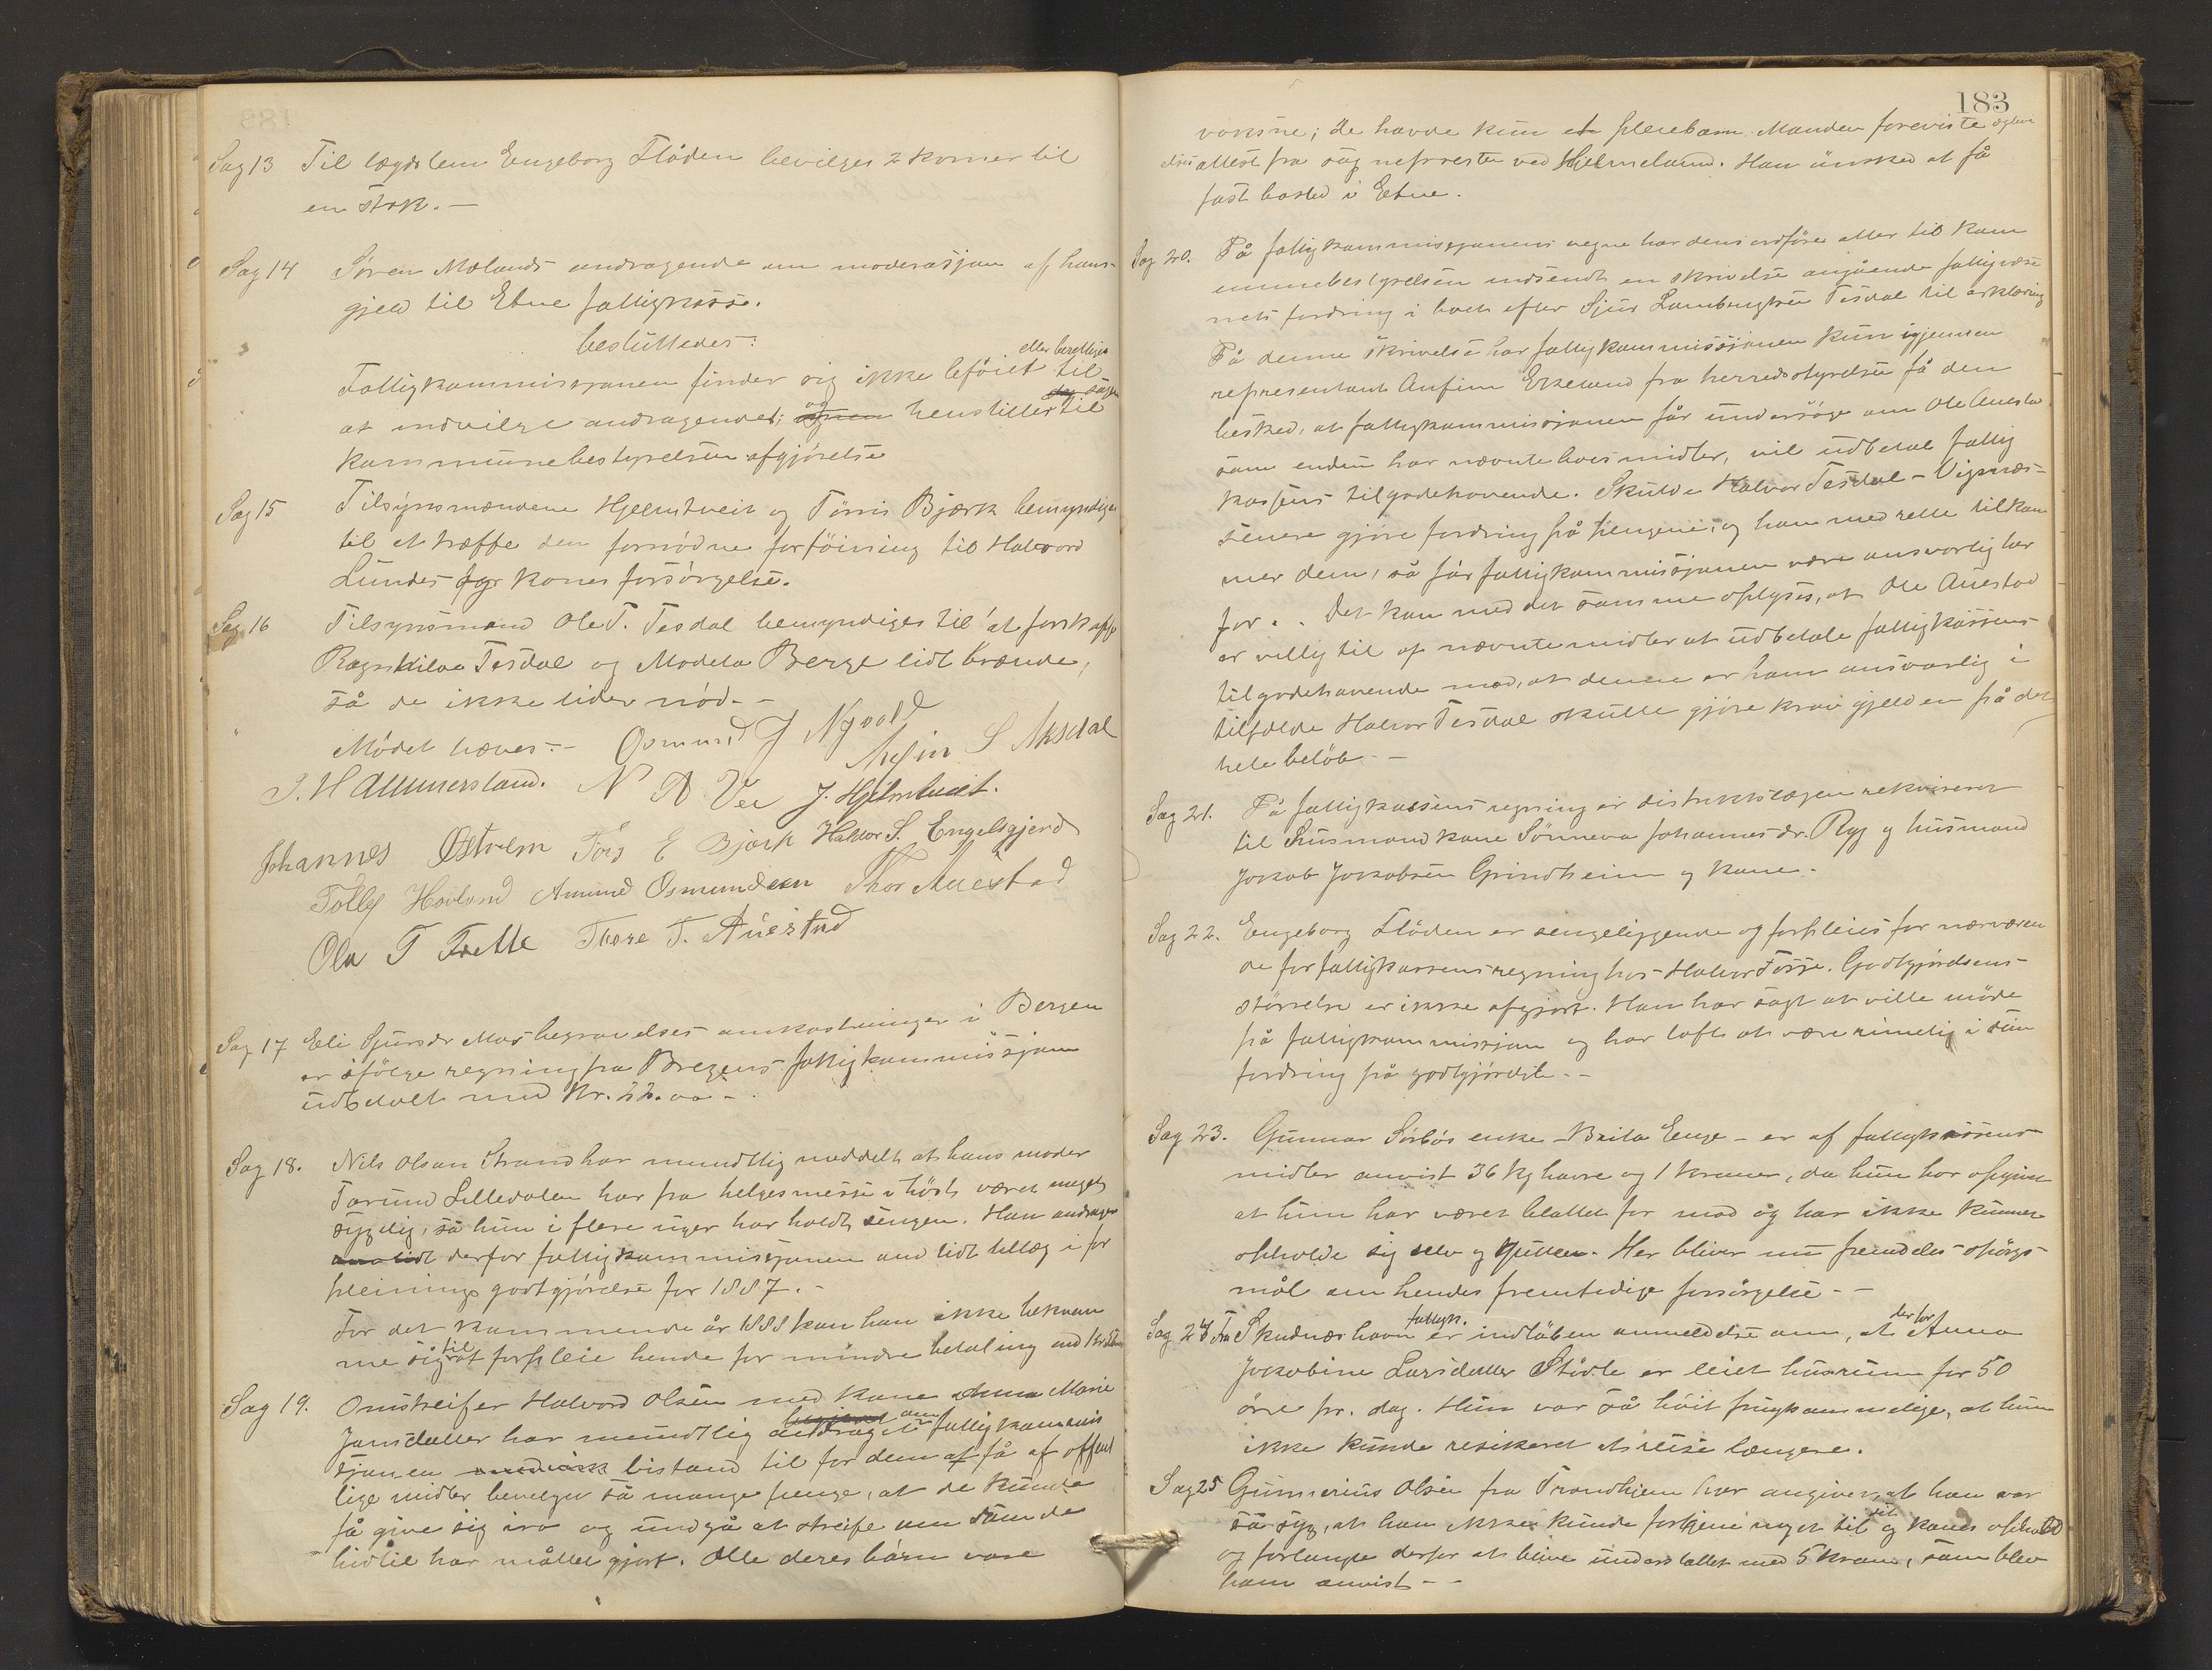 Sag 13 Til lægdslem Engeborg Flåden bevilges 2 kroner til
en stok. —
Sag 14 Søren Mælands andragende om moderasjon af hans
gjeld til Etne fattigkasse.
besluttedes:
Fattigkommissjonen finder sig ikke beføiet eller berettiget til
at indvilge andragendet; og henstiller sagen til
kommunebestyrelsens afgjørelse
Sag 15 Tilsynsmændene Hjelmtveit og Tørris Bjørk bemyndiges
til at træffe den fornødne forføining til Halvord
Lundes kones forsørgelse.
Sag 16 Tilsynsmand Ole T. Tesdal bemyndiges til at forskaffe
Ragnhilda Tesdal og Madela Berge lidt brænde,
så de ikke lider nød. -
Mødet hæves. - Osmund J Nysol
Anfin S Aksdal
J. Hammersland. N A Vee J. Hjelmtveit.
Johannes Østrem Tørs E Bjørk Halvor S. Engelsgjerd
Tollef Hovland Amund Osmundsen Thor Auestad
Ola T Frette Thore T. Auestad
Sag 17 Eli Sjursdr Mos begravelses omkostninger i Bergen
er ifølge regning fra Bergens fattigkommissjon
udbetalt med Kr. 22.00 -
Sag 18. Nils Olsen Strand har mundtlig meddelt at hans moder
Tarund Lilledalen har fra helgesmesse i høst været meget
sygelig, så hun i flere uger har holdt sengen. Han andrager
derfor fattigkommissjonen om lidt tillæg i for
pleinings godtgjørelse for 1887. -
For det kommende år 1888 kan han ikke bekvem
me sig til at forpleie hende for mindre betaling end
Sag 19. Omstreifer Halvord Olsen med kone Anna Marie
Jansdatter har mundtlig andraget om fattigkommis
sjonen bistand til for dem at få af offent
lige midler bevilget så mange penge, at de kunde
få give sig iro og undgå at streife om som de
hidtil har måttet gjort. Alle deres børn vare
183
voksne; de havde kun et pleiebarn. Manden foreviste ægtevi
elses attest fra sognepresten ved Hjelmeland. Han ønsked at få
fast bosted i Etne.
Sag 20. På fattigkommissjonens vegne har dens ordfører atter til kom
munebestyrelsen indsendt en skrivelse angående fattigvæse
nets fordring i boet efter Sjur Lambregtsen Tesdal til erklæring
På denne skrivelse har fattigkommissjonen kun igjennem
representant Anfinn Erkeland fra herredsstyrelsen få den
besked, at fattigkommissjonen får undersøge om Ole Auestad
som endnu har nævnte boes midler, vil udbetale fattig
kassens tilgodehavende. Skulde Halvor Tesdal - Vignæs -
senere gjøre fordring på pengene, og ham med rette tilkom
mer dem, så får fattigkommissjonen være ansvarlig her
for. . Det kan med det samme oplyses, at Ole Auestad
er villig til af nævnte midler at udbetale fattigkassens
tilgodehavende mod, at denne er ham ansvarlig i
tilfælde Halvor Tesdal skulle gjøre krav gjelden på det
hele beløb. -
Sag 21. På fattigkassens regning er distriktslægen rekvireret
til husmandkone Sønneva Johannesdr. Ryg og husmand
Jokob Jokobsen Grindheim og kone.
Sag 22. Engeborg Flåden er sengeliggende og forpleies for nærværen
de for fattigkassens regning hos Halvor Fosse. Godtgjørelsens
størrelse er ikke afgjort. Han har sagt at ville møde
på fattigkommissjon og har loft at være rimelig i sin
fordring på godtgjørelse. -
Sag 23. Gunnar Sørbøs enke - Brita Enge - er af fattigkassens
midler anvist 36 kg havre og 1 kroner, da hun har opgivet
at hun har været blottet for mad og har ikke kunnet
opholde sig selv og gutten. Her bliver nu fremdeles spørgs-
mål om hendes fremtidige forsørgelse. -
Sag 24 Fra Skudneshavn fattigk. er indløben anmeldelse om, at der for Anna
Jokobine Larsdatter Støvle er leiet husrum for 50
øre pr. dag. Hun var så høit frugsommelige, at hun
ikke kunde resikeret at reise længere.
Sag 25 Gunnerius Olsen fra Trondhjem har angiven, at han var
så syg, at han ikke kunde fortjene noget til sit og kones ophold
og forlangte derfor at blive understøttet med 5 kroner, som blev
ham anvist - -